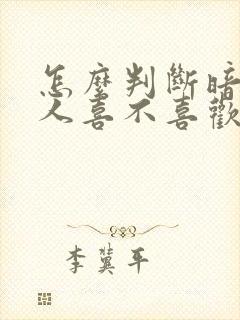 怎麼判斷暗
人喜不喜歡
李冀平